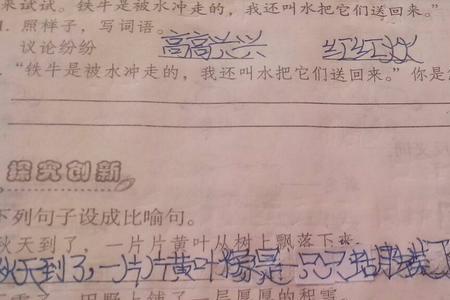 来试试。铁牛是被水冲走的，我还叫水把它们送回来。”
1. 照样子，写词语。
议论纷纷 高高兴兴 红红火火
“铁牛是被水冲走的，我还叫水把它们送回来。”你是
探究创新
下列句子设成比喻句。
秋天到了，一片片黄叶从树上飘落下来。
秋天到了，一片片黄叶像是一只只蝴蝶
田野上铺了一层厚厚的积雪